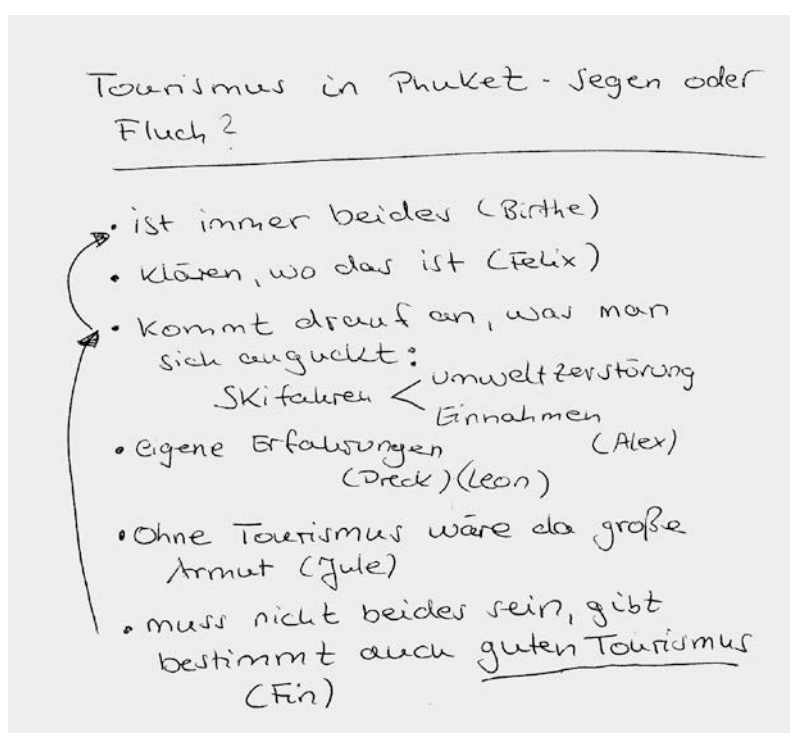 Tourismus in Phuket - Segen oder
Fluch?
• ist immer beides (Birthe)
• klären, wo das ist (Felix)
• kommt drauf an, was man
sich anguckt:
Skifahren < Umweltzerstörung
Einnahmen
(Alex)
• eigene Erfahrungen
(Dreck) (Leon)
• Ohne Tourismus wäre da große
Armut (Jule)
• muss nicht beides sein, gibt
bestimmt auch guten Tourismus
(Fin)